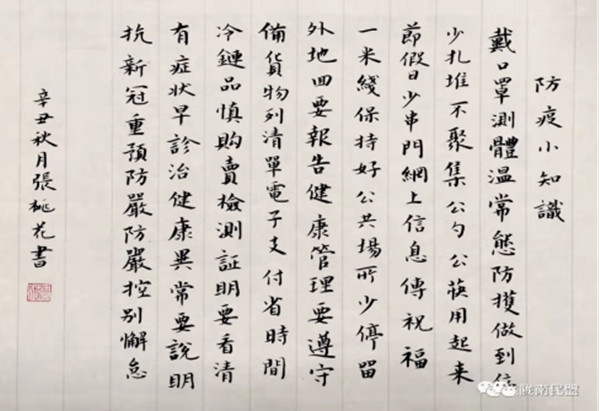 防疫小知識
戴口罩測體溫常態防護做到位
少扎堆不聚集公勺公筷用起来
節假日少串門網上信息傳祝福
一米綫保持好公共場所少停留
外地回要報告健康管理要遵守
備貨物列清單電子支付省時間
冷鏈品慎购賣檢測証明要看清
有症状早診治健康異常要說明
抗新冠重預防嚴防嚴控别懈怠
辛丑秋月張桃花書
陇南民盟